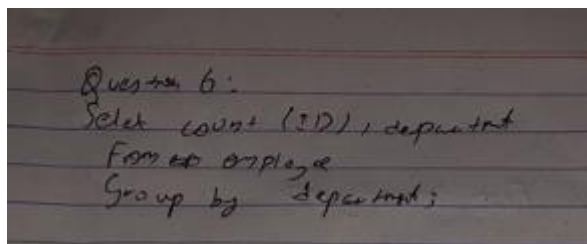 Question 6:
Select count (ID), department
From employee
Group by department;